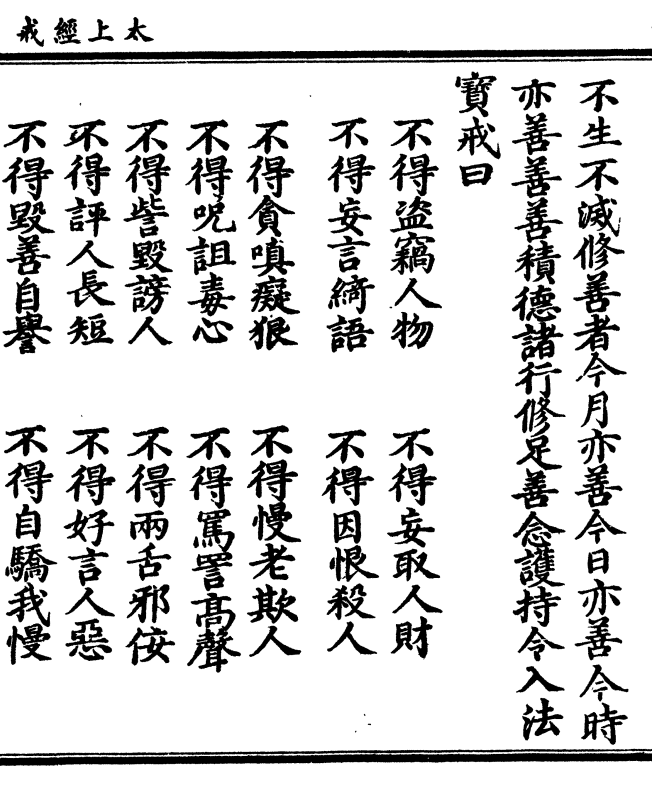 太上經戒
不生不滅修善者今月亦善今日亦善今時
亦善善善積德諸行修足善念護持令入法
寶戒曰
不得盜竊人物 不得妄取人財
不得妄言綺語 不得因恨殺人
不得貪嗔癡狠 不得慢老欺人
不得呪詛毒心 不得罵詈高聲
不得訾毀謗人 不得兩舌邪佞
不得評人長短 不得好言人惡
不得毀善自譽 不得自驕我慢